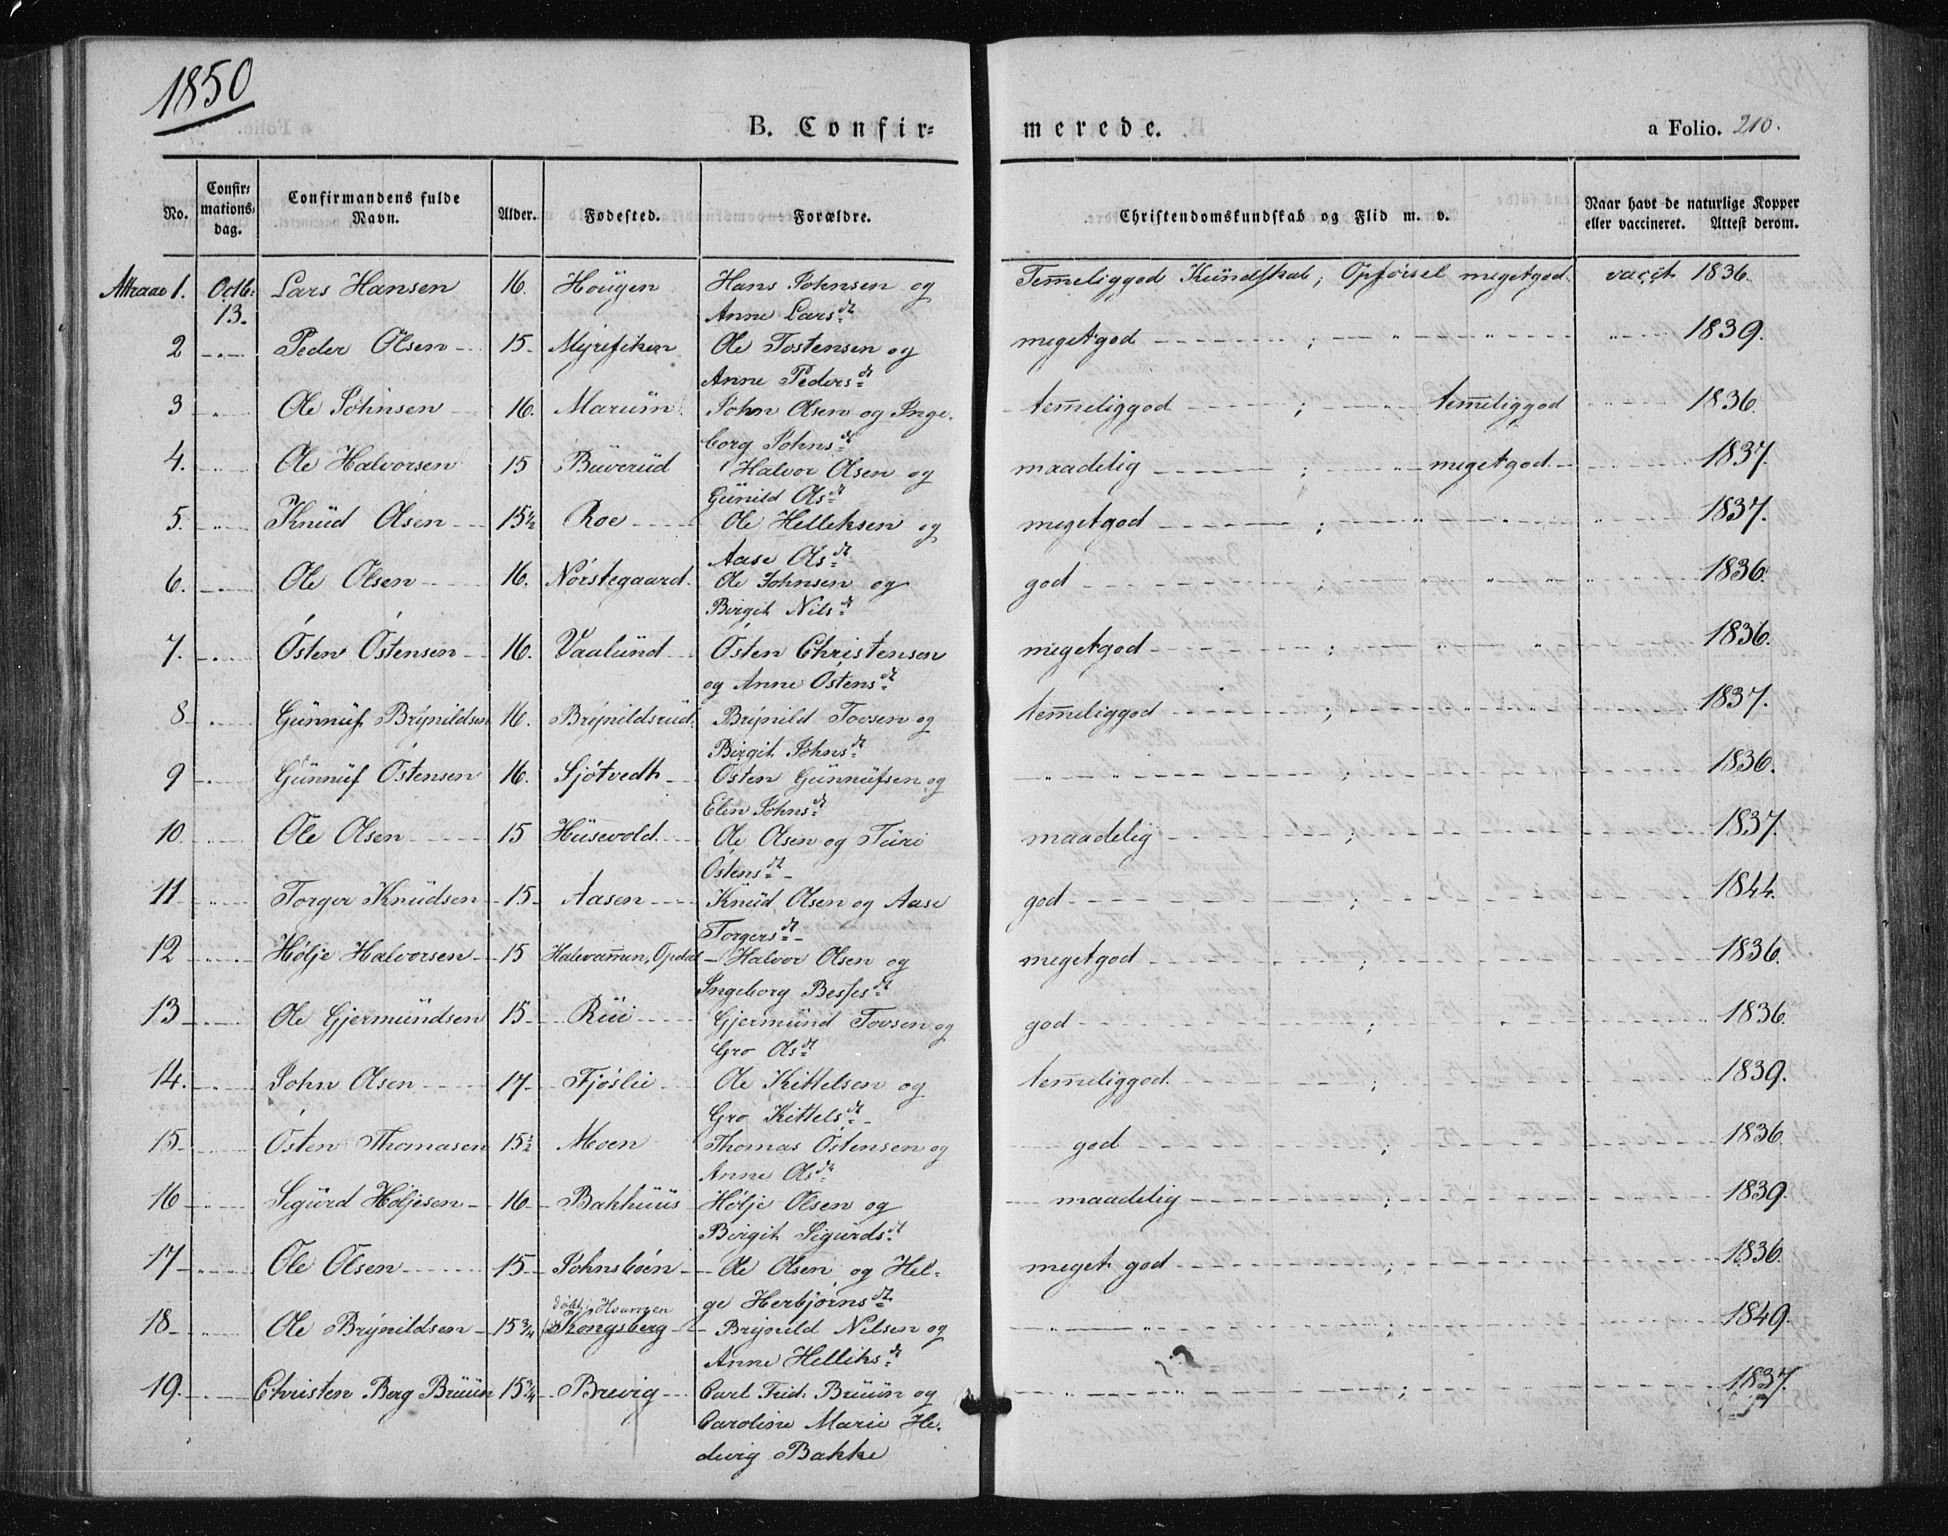 1850
B. Confir= merede. a Folio. 210.
No. Confir= mations= dag. Confirmandens fulde Navn. Alder. Fødested. Forældre. Christendomskundskab og Flid m. v. Naar havt de naturlige Kopper eller vaccineret. Attest derom.
1. Octb: Lars Hansen 16. Hougen Hans Johnsen og Temeliggod Kundskab; Opførsel megetgod. vacct 1836.
13. Anne Larsdt
2 Peder Olsen 15 Ole Tostensen og megetgod ; " " 1839.
Anne Pedersdt
3 Ole Johnsen 16. Marum John Olsen og Inge= temeliggod ; " temeliggod 1836.
borg Johnsdt
4. Ole Halvorsen 15 Buverud Halvor Olsen og maadelig ; " megetgod 1837.
Gunild Olsdt
5. Knud Olsen 15½ Roe Ole Helleksen og megetgod ; " " 1837.
Aase Olsdt
6. Ole Olsen 16. Nørstegaard Ole Johnsen og god ; " " 1836.
Birgit Nilsdt
7. Østen Østensen 16. Vaalund Østen Christensen megetgod ; " " 1836.
og Anne Østensdt
8 Gunnuf Brynildsen 16. Brynildsrud Brynild Tovsen og temeliggod ; " " 1837.
Birgit Johnsdt
9 Gunnuf Østensen 16. Sjøtvedt Østen Gunnufsen og " " ; 1836.
Elen Johnsdt
10 Ole Olsen 15 Husevold Ole Olsen og Turi maadelig ; 1837.
Østensdt
11 Torger Knudsen 15 Aasen Knud Olsen og Aase god ; 1844.
Torgersdt
12 Hølje Halvorsen 15 Opdal Halvor Olsen og megetgod ; 1836.
Ingeborg Bessesdt
13 Ole Gjermundsen 15 Rui Gjermund Tovsen og god ; 1836.
Gro Olsdt
14. John Olsen 17 Fjøslie Ole Kittelsen og temeliggod ; 1839.
Gro Kittelsdt
15 Østen Thomasen 15½ Moen Thomas Østensen og god ; 1836.
Anne Olsdt
16 Sigurd Høljesen 16 Bakhuus Hølje Olsen og maadelig ; 1839.
Birgit Sigurdsdt
17 Ole Olsen 15 Johnsbøen Ole Olsen og Hel= meget god ; 1836.
ge Herbjørnsdt
18 Ole Brynildsen 15¾ Kongsberg Brynild Nilsen og " ; 1849.
Anne Helliksdt
19. Christen Berg Bruun 15¾ Brevig Carl Frid: Bruun og " " ; 1837.
Caroline Marie He=
dvig Bakke